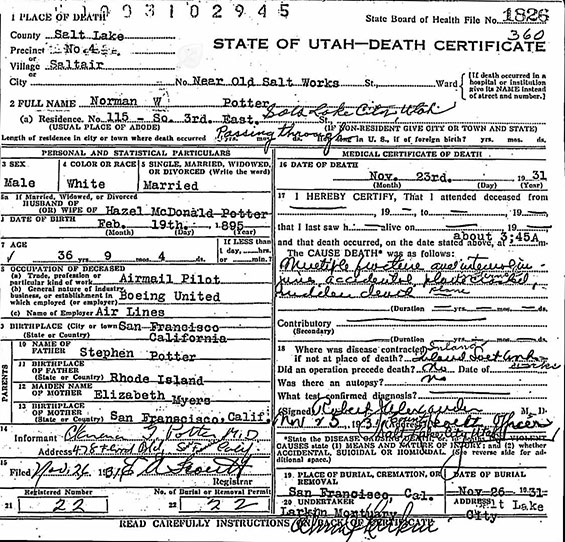 1 0 0 3 1 0 2 9 4 5
1 PLACE OF DEATH
State Board of Health File No. 1826
360
County Salt Lake
Precinct No. 4
or
Village Saltair
or
City
STATE OF UTAH—DEATH CERTIFICATE
No. Near Old Salt Works St., Ward
(If death occurred in a hospital or institution give its NAME instead of street and number.)
2 FULL NAME Norman W Potter
(a) Residence. No. 115 - So. 3rd. East. Salt Lake City, Utah
(USUAL PLACE OF ABODE) (IF NON-RESIDENT GIVE CITY OR TOWN AND STATE)
Length of residence in city or town where death occurred Passing through in U. S., if of foreign birth? yrs. mos. ds.
PERSONAL AND STATISTICAL PARTICULARS
3 SEX
Male
4 COLOR OR RACE
White
5 SINGLE, MARRIED, WIDOWED, OR DIVORCED (Write the word)
Married
5a If Married, Widowed, or Divorced
HUSBAND OF
(OR) WIFE OF Hazel McDonald Potter
DATE OF BIRTH Feb. 19th. 1895
(Month) (Day) (Year)
7 AGE
36 9 4
If LESS than
1 day, hrs.
or min.
8 OCCUPATION OF DECEASED
(a) Trade, profession or particular kind of work Airmail Pilot
(b) General nature of industry, business, or establishment in which employed (or employer) Boeing United
(c) Name of Employer Air Lines
9 BIRTHPLACE (City or town) San Francisco
(State or Country) California
PARENTS
10 NAME OF FATHER Stephen Potter
11 BIRTHPLACE OF FATHER
(State or Country) Rhode Island
12 MAIDEN NAME OF MOTHER Elizabeth Myers
13 BIRTHPLACE OF MOTHER
(State or Country) San Franscisco, Calif.
14
Informant M.D.
Address City
15
Filed Nov. 26 1931
Registrar
Registered Number
21 22
No. of Burial or Removal Permit
22 22
MEDICAL CERTIFICATE OF DEATH
16 DATE OF DEATH
Nov. 23rd. 1931
(Month) (Day) (Year)
17 I HEREBY CERTIFY, That I attended deceased from
19 , to , 19
that I last saw h alive on 19
about 3:45A
and that death occurred, on the date stated above, at m.
The CAUSE DEATH* was as follows:
Multiple
accidental
(Duration yrs. mos. ds.
Contributory
(Secondary)
(Duration yrs. mos. ds.
18 Where was disease contracted
if not at place of death?
Did an operation precede death? No Date of
Was there an autopsy? No
What test confirmed diagnosis?
(Signed M. D.
Nov 25 1931
*State the DISEASE CAUSING DEATH, or, in VIOLENT CAUSES state (1) MEANS AND NATURE OF INJURY; and (2) whether ACCIDENTAL, SUICIDAL OR HOMICIDAL. (See reverse side for additional space.)
19 PLACE OF BURIAL, CREMATION, OR REMOVAL
San Francisco, Cal.
DATE OF BURIAL
Nov-26- 1931
20 UNDERTAKER
Larkin Mortuary
ADDRESS Salt Lake City
READ CAREFULLY INSTRUCTIONS ON BACK OF CERTIFICATE